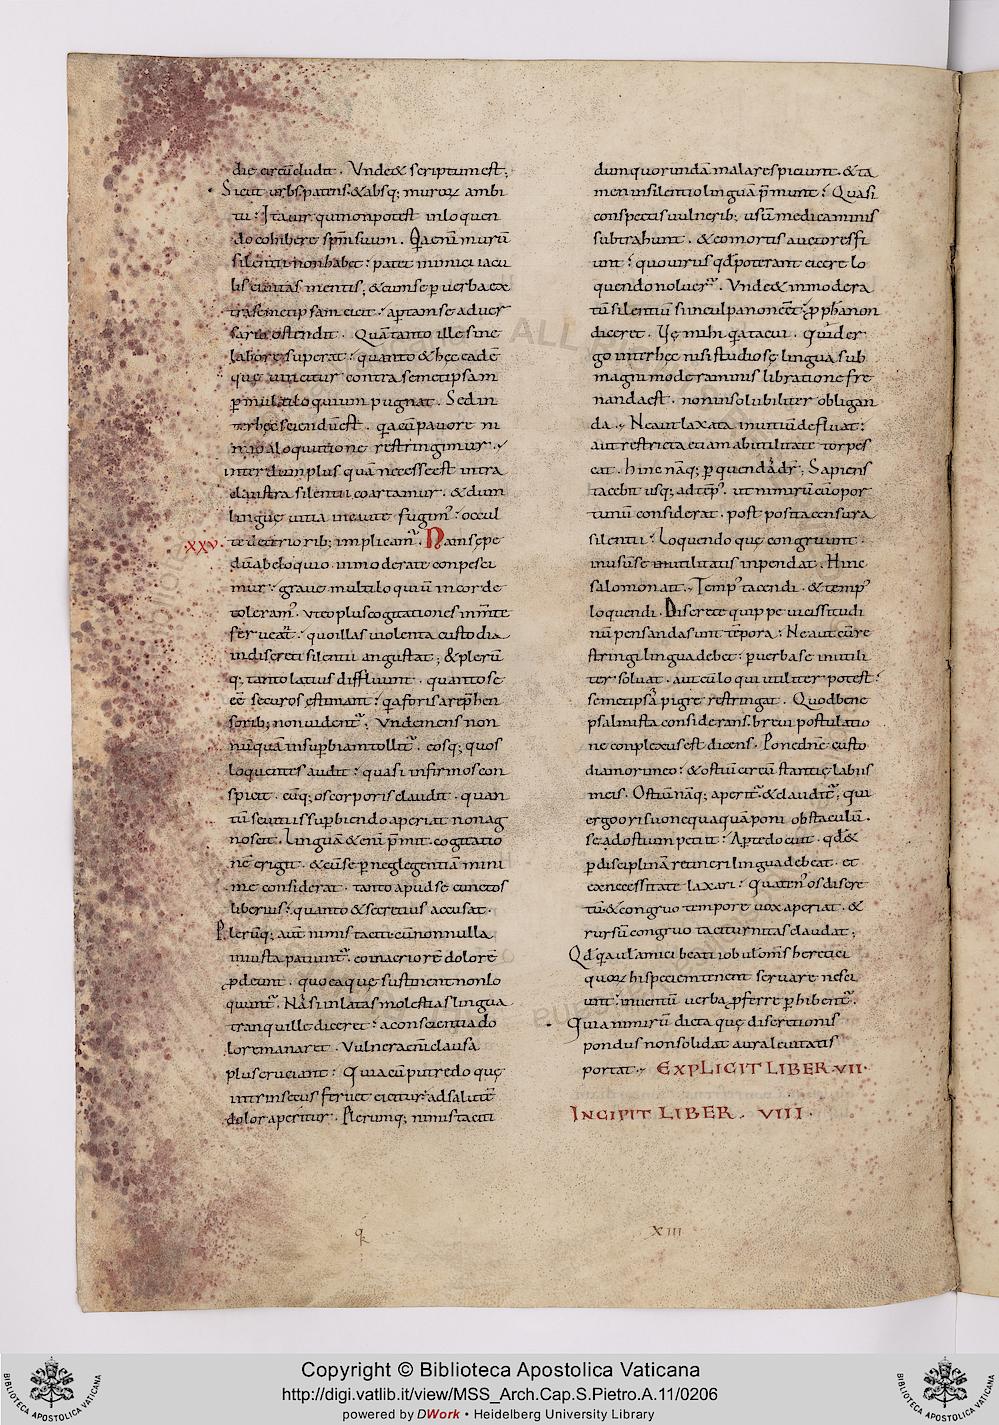 die circūcludit. Vnde & scriptum est;
Sicut urbs patens & absq; muroꝝ ambi
tu: Ita uir qui non potest in loquen
do cohibere spm̄ suum. Qa enī murū
silentii non habet: patet inimici iacu
lis ciuitas mentis; & cum se ꝑ uerba ex
tra semetipsam eicit: aptam se aduer
sario ostendit. Quā tanto ille sine
labore superat: quanto & hęc eadē
quę uincitur contra semetipsam
ꝑ multiloquium pugnat. Sed in
ter hęc sciendū est. qa cū pauore ni
mio a loquutione restringimur.
interdum plus quā necesse est intra
claustra silentii coartamur. & dum
linguę uitia incaute fugim': occul
te deteriorib; implicam̄.
·xxv·
Nam sępe
dū ab eloquio inmoderate conpesci
mur: graue multiloquiū in corde
toleram'. vt eo plus cogitationes in m̄te
ferueāt: quo illas uiolenta custodia
indiscreti silentii angustat; & plerū
q; tanto latius diffluunt. quanto se
eē securos estimant: qa foris a rephen
sorib; non uident̄. Vnde mens non
nūquā in supbiam tollit̄. eosq; quos
loquentes audit: quasi infirmos con
spicit. cūq; os corporis claudit. quan
tū se uitiis supbiendo aperiat non ag
noscit. Linguā & enī p̄mit. cogitatio
nē erigit. & cū se ꝑ neglegentiā mini
me considerat. tanto apud se cunctos
liberius: quanto & secretius accusat.
Plerūq; aut nimis taciti cū nonnulla
iniusta patiunt̄. eo in acriorē dolorē
ꝓdeunt. quo ea que sustinent non lo
quunt̄. Nā si inlatas molestias lingua
tranquille diceret: a conscientia do
lor emanaret. Vulnera enī clausa
plus cruciant: Quia cū putredo quę
intrinsecus feruet eicitur: ad salutē
dolor aperitur. Plerumq; nimis taciti
dum quorundā mala respiciunt. & ta
men in silentio linguā p̄munt: Quasi
conspectis uulnerib; usū medicaminis
subtrahunt. & eo mortis auctores fi
unt: quo uirus qd̄ poterant eicere lo
quendo noluer̄. Vnde & inmodera
tū silentiū si in culpa non eēt: ꝓphā non
diceret. Uę mihi qa tacui. Quid er
go inter hęc nisi studiose lingua sub
magni moderaminis libratione fre
nanda est. non insolubiliter obligan
da. Ne aut laxata in uitiū defluat:
aut restricta etiam ab utilitate torpes
cat. hinc nāq; ꝑ quendā dr̄; Sapiens
tacebit usq; ad tēp'. ut nimirū cū opor
tunū considerat. postposita censura
silentii: Loquendo quę congruunt.
in usū se utilitatis inpendat. Hinc
salomon ait. Temp' tacendi. & temp'
loquendi. Discrete quippe uicissitudi
nū pensanda sunt tēpora: Ne aut cū re
stringi lingua debet: ꝑ uerba se inutili
ter soluat. aut cū loqui utiliter potest:
semetipsā pigre restringat. Quod bene
psalmista considerans. breui postulatio
ne conplexus est dicens. Pone dn̄e custo
diam ori meo: & ostiū circū stantię labiis
meis. Ostiū nāq; aperit̄. & claudit̄; qui
ergo ori suo nequaquā poni obstaculū.
sed ad ostium petiit: Apte docuit. qd̄ &
ꝑ disciplinā retineri lingua debeat. et
ex necessitate laxari: Quaten' os discre
tū & congruo tempore uox aperiat. &
rursū congruo taciturnitas claudat;
Qd̄ qa ul amici beati iob ul om̄s heretici
quoꝝ hi speciem tenent seruare nesci
unt: in uentū uerba ꝓferre ꝑhibent̄.
Quia nimirū dicta quę discretionis
pondus non solidat aura leuitatis
portat.
EXPLICIT LIBER VII·
INCIPIT LIBER. VIII·
qk
XIII
Copyright © Biblioteca Apostolica Vaticana
http://digi.vatlib.it/view/MSS_Arch.Cap.S.Pietro.A.11/0206
powered by DWork • Heidelberg University Library
BIBLIOTECA APOSTOLICA VATICANA
BIBLIOTECA APOSTOLICA VATICANA